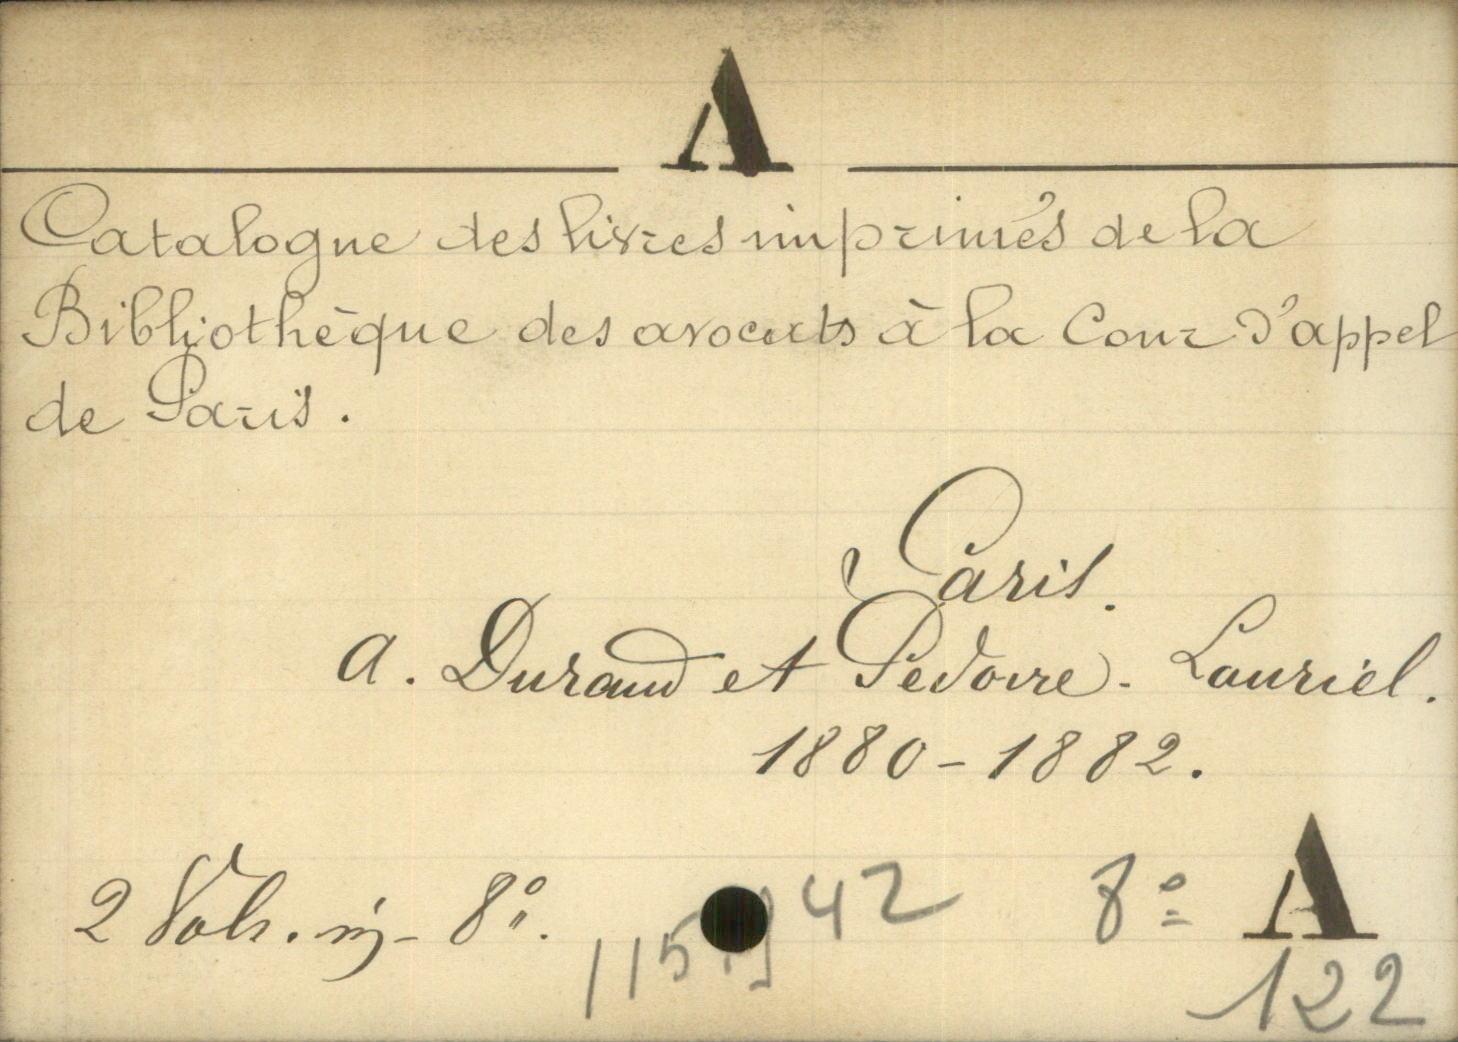 A
Catalogue des livres imprimés de la
Bibliothèque des avocats à la Cour d'appel
de Paris.
Paris.
A. Durand et Pedone-Lauriel.
1880-1882.
2 Vols. in-8º.
8º A
122